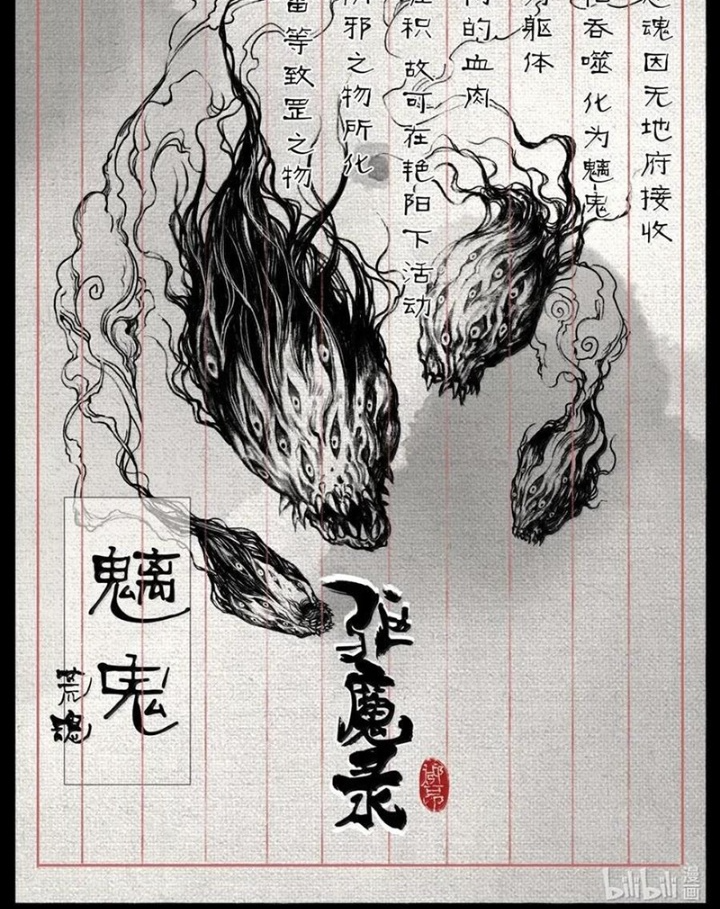 魂因无地府接收
吞噬化为魑鬼
躯体
的血肉
积故可在艳阳下活动
邪之物所化
等致罡之物
魑鬼
荒魂
驱魔录
bilibili 漫画